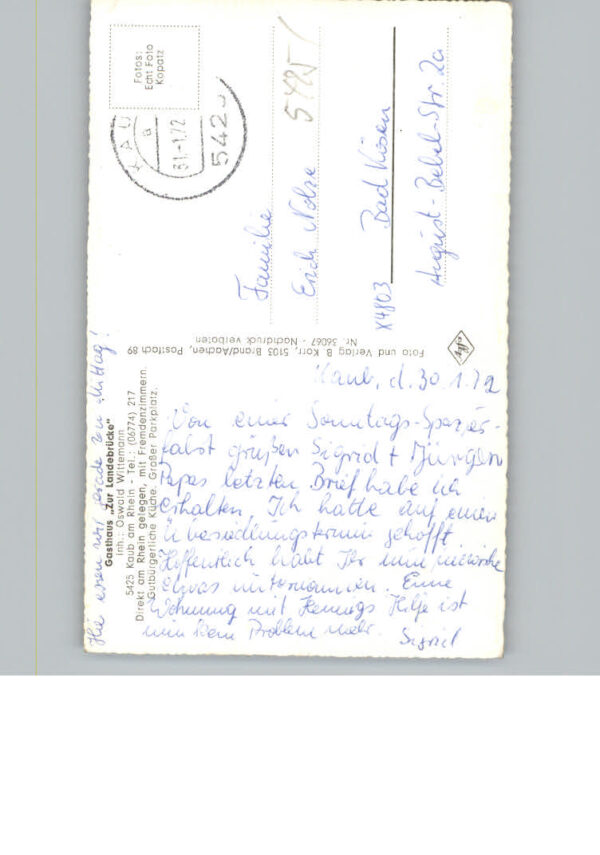 Fotos:
Echt Foto
Kopatz
KAUB
a
31.-1.72
5425
5425/
Familie
Erich Nolze
X4803 Bad Kösen
August-Bebel-Str. 2a
Foto und Verlag B. Korr, 5103 Brand/Aachen, Postfach 89
Nr. 36067 - Nachdruck verboten
Kaub, d. 30.1.72
Von einer Sonntags-Spazier-
fahrt grüßen Sigrid + Jürgen
Papas letzten Brief habe ich
erhalten. Ich hatte auf einen
Übersiedlungstermin gehofft
Hoffentlich habt Ihr inzwischen
etwas unternommen. Eine
Wohnung mit Hennings Hilfe ist
nun kein Problem mehr.
Sigrid
Hier essen wir gerade zu Mittag!
Gasthaus „Zur Landebrücke"
Inh.: Oswald Wittemann
5425 Kaub am Rhein - Tel.: (06774) 217
Direkt am Rhein gelegen, mit Fremdenzimmern.
Gutbürgerliche Küche. Großer Parkplatz.